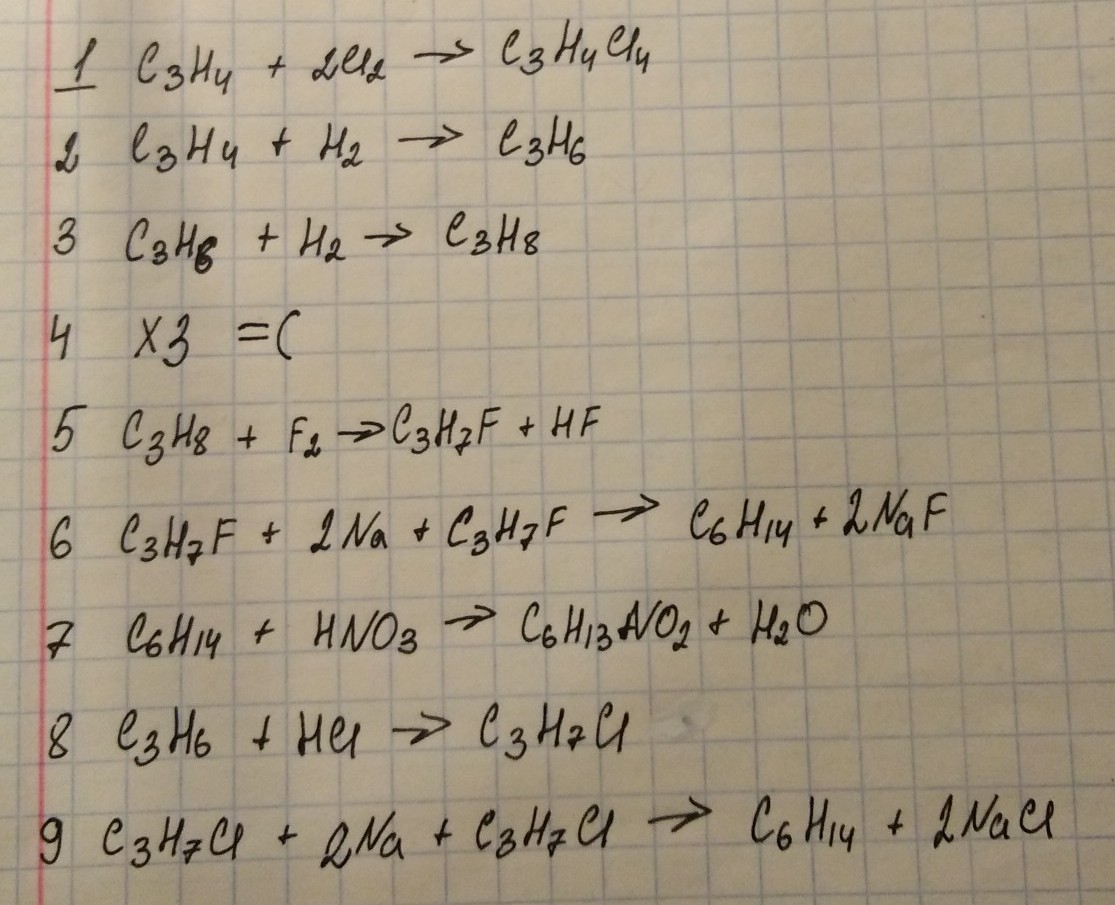 1 C₃H₄ + 2Cl₂ → C₃H₄Cl₄
2 C₃H₄ + H₂ → C₃H₆
3 C₃H₆ + H₂ → C₃H₈
4 ХЗ =(
5 C₃H₈ + F₂ → C₃H₇F + HF
6 C₃H₇F + 2Na + C₃H₇F → C₆H₁₄ + 2NaF
7 C₆H₁₄ + HNO₃ → C₆H₁₃NO₂ + H₂O
8 C₃H₆ + HCl → C₃H₇Cl
9 C₃H₇Cl + 2Na + C₃H₇Cl → C₆H₁₄ + 2NaCl